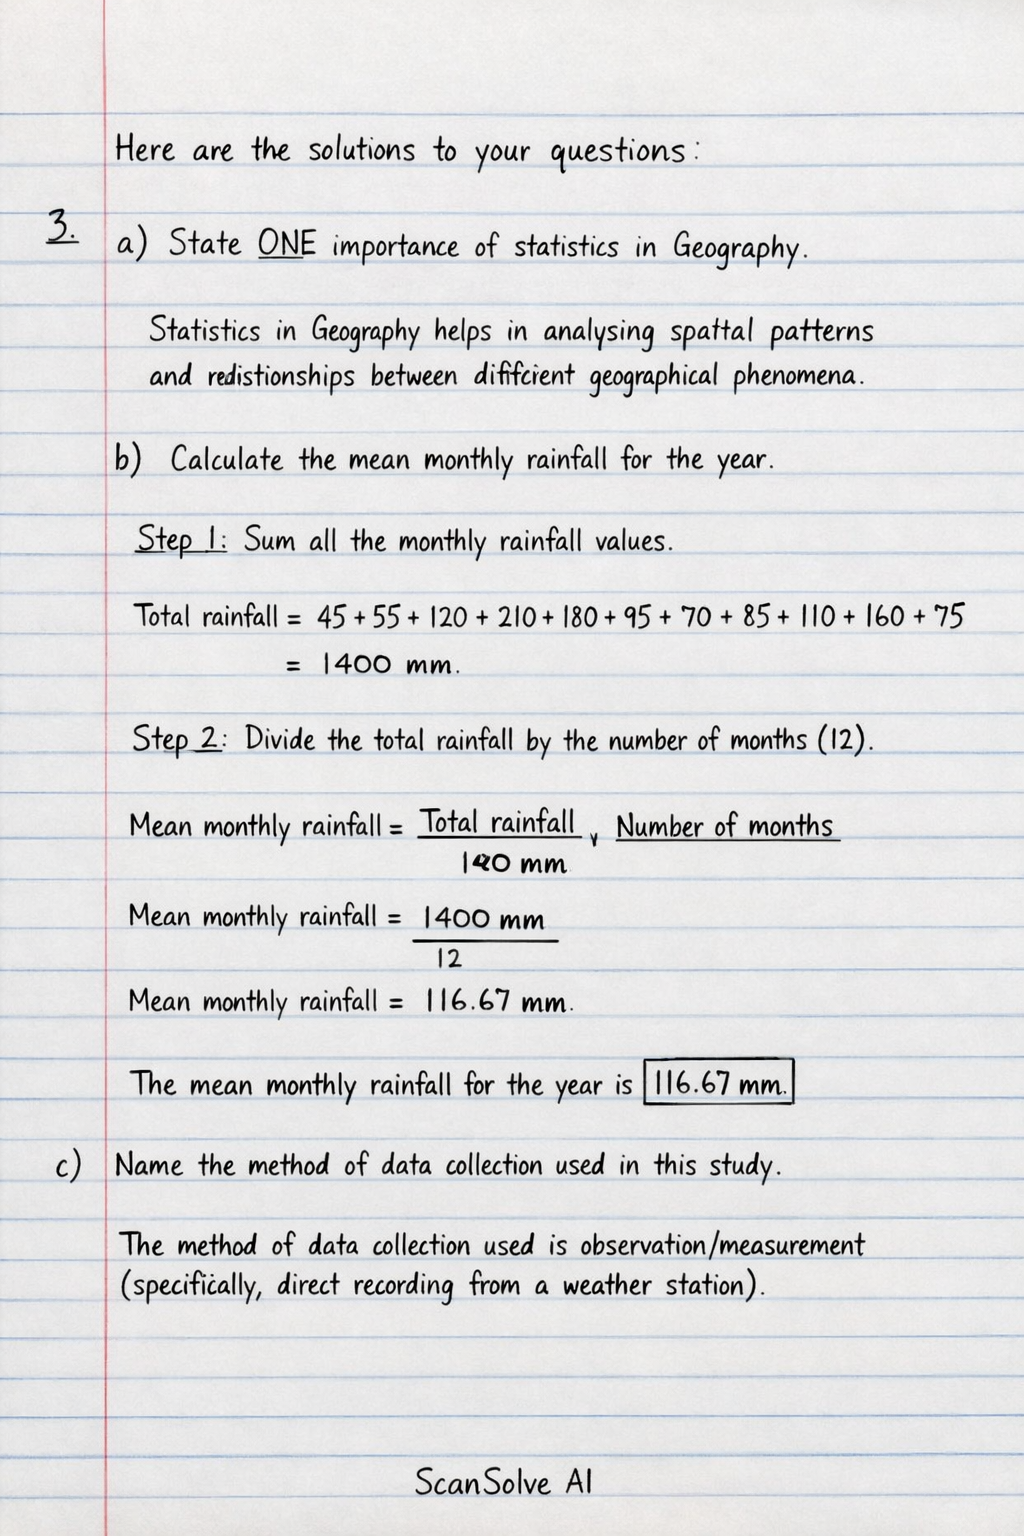 Here are the solutions to your questions:
3. a) State ONE importance of statistics in Geography.
Statistics in Geography helps in analysing spattal patterns
and redistionships between difffcient geographical phenomena.
b) Calculate the mean monthly rainfall for the year.
Step 1: Sum all the monthly rainfall values.
Total rainfall = 45 + 55 + 120 + 210 + 180 + 95 + 70 + 85 + 110 + 160 + 75
= 1400 mm.
Step 2: Divide the total rainfall by the number of months (12).
Mean monthly rainfall = Total rainfall , Number of months
mm
Mean monthly rainfall = 1400 mm
12
Mean monthly rainfall = 116.67 mm.
The mean monthly rainfall for the year is 116.67 mm.
c) Name the method of data collection used in this study.
The method of data collection used is observation/measurement
(specifically, direct recording from a weather station).
ScanSolve AI